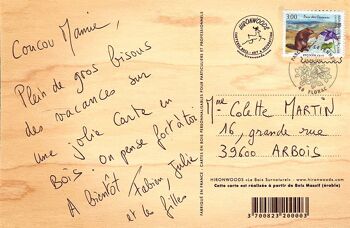 Coucou Mamie,
Plein de gros bisous
des vacances sur
une jolie carte en
Bois. on pense fort à toi
A bientôt Fabien, Julie
et les filles
CARTES EN BOIS PERSONNALISABLES POUR PARTICULIERS ET PROFESSIONNELS
HIRONWOODS
3,00
48 FLORAC
Mme Colette MARTIN
16, grande rue
39600 ARBOIS
HIRONWOODS «Le Bois Surnaturel» - www.hironwoods.com
Cette carte est réalisée à partir de Bois Massif (érable)
3 700823 200003